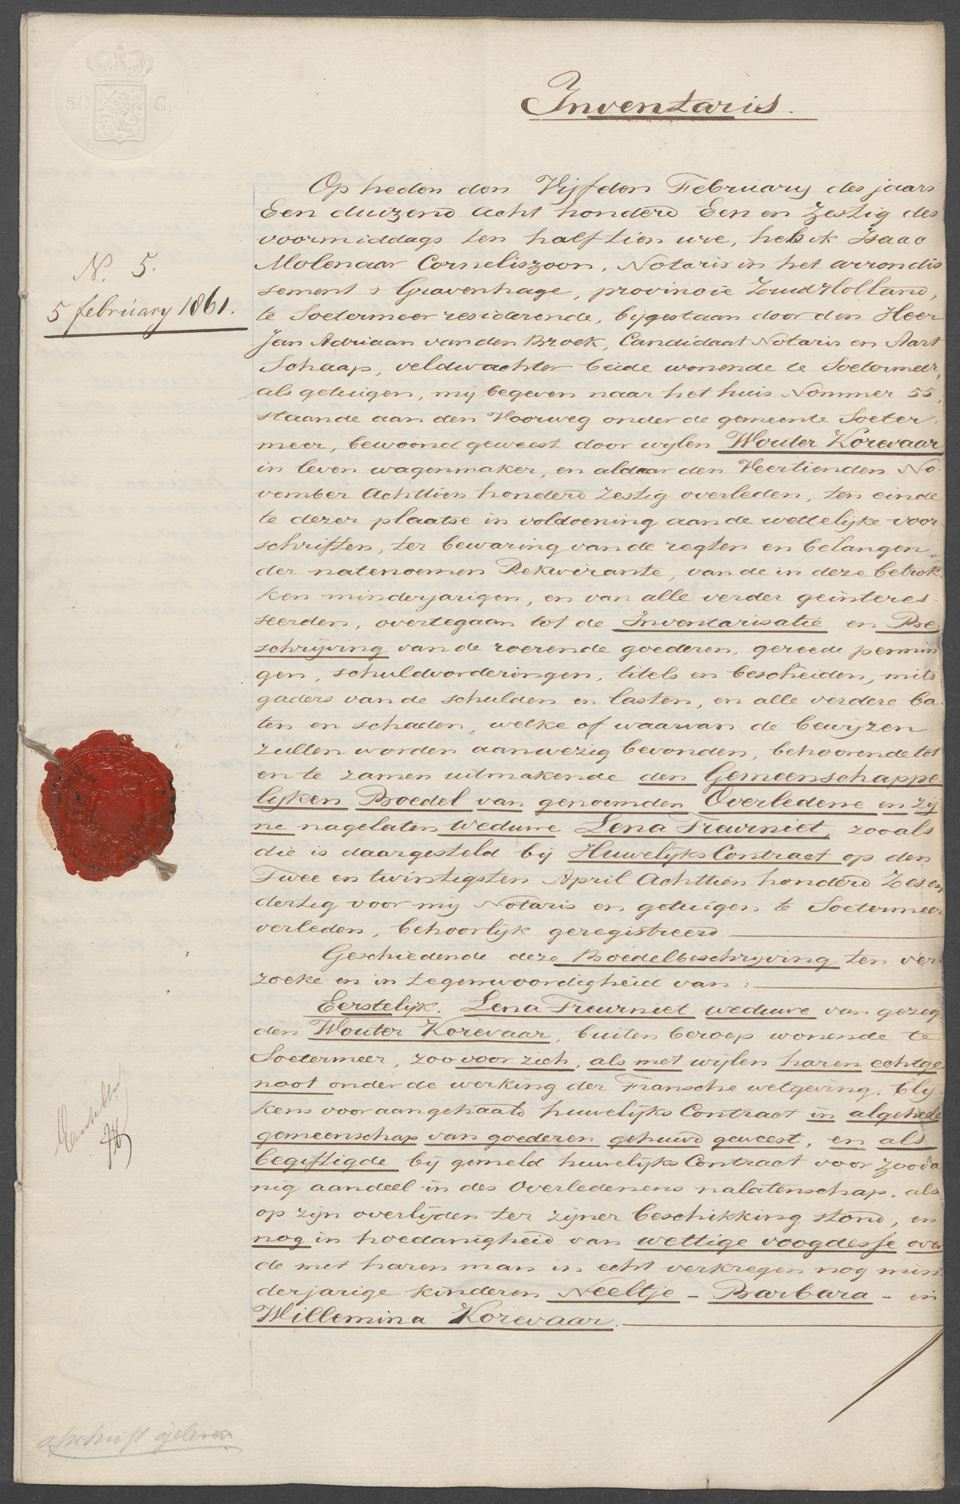 50 C.
Inventaris.
N. 5.
5 february 1861.
Op heden den Vijfden February des jaars
Een duizend acht honderd Een en Zestig des
voormiddags ten half tien ure, heb ik Isaac
Molenaar Corneliszoon, Notaris in het arrondis
sement 's Gravenhage, provincie Zuid Holland,
te Soetermeer residerende, bijgestaan door den Heer
Jan Adriaan van den Broek, Candidaat Notaris en Aart
Schaap, veldwachter beide wonende te Soetermeer,
als getuigen, mij begeven naar het huis Nommer 55,
staande aan den Voorweg onder de gemeente Soeter
meer, bewoond geweest door wijlen Wouter Korevaar
in leven wagenmaker, en aldaar den Veertienden No
vember Achttien honderd zestig overleden, ten einde
te dezer plaatse in voldoening aan de wettelijke voor
schriften, ter bewaring van de regten en belangen
der natenoemen Rekwirante, van de in deze betrok
ken minderjarigen, en van alle verder geinteres
seerden, overtegaan tot de Inventarisatie en Be
schrijving van de roerende goederen, gereede pennin
gen, schuldvorderingen, titels en bescheiden, mits
gaders van de schulden en lasten, en alle verdere ba
ten en schaden, welke of waarvan de bewijzen
zullen worden aanwezig bevonden, behoorende tot
en te zamen uitmakende den Gemeenschappe
lijken Boedel van genoemden Overledene en zij
ne nagelaten weduwe Lena Treurniet, zooals
die is daargesteld bij Huwelijks Contract op den
Twee en twintigsten April Achttien honderd Zes en
dertig voor mij Notaris en getuigen te Soetermeer
verleden, behoorlijk geregistreerd
Geschiedende deze Boedelbeschrijving ten ver
zoeke en in tegenwoordigheid van:
Eerstelijk. Lena Treurniet weduwe van gezeg
den Wouter Korevaar, buiten beroep wonende te
Soetermeer, zoo voor zich, als met wijlen haren echtge
noot onder de werking der Fransche wetgeving, blij
kens voor aangehaald huwelijks Contract in algeheele
gemeenschap van goederen gehuwd geweest, en als
begiftigde bij gemeld huwelijks Contract voor zooda
nig aandeel in des Overledenens nalatenschap, als
op zijn overlijden ter zijner beschikking stond, en
nog in hoedanigheid van wettige voogdesse over
de met haren man in echt verkregen nog min
derjarige kinderen Neeltje - Barbara - en
Willemina Korevaar.
afschrift gelever